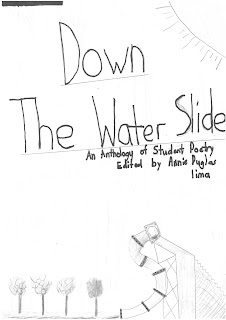 Down
The Water Slide
An Anthology of Student Poetry
Edited by Annie Puglas
lima